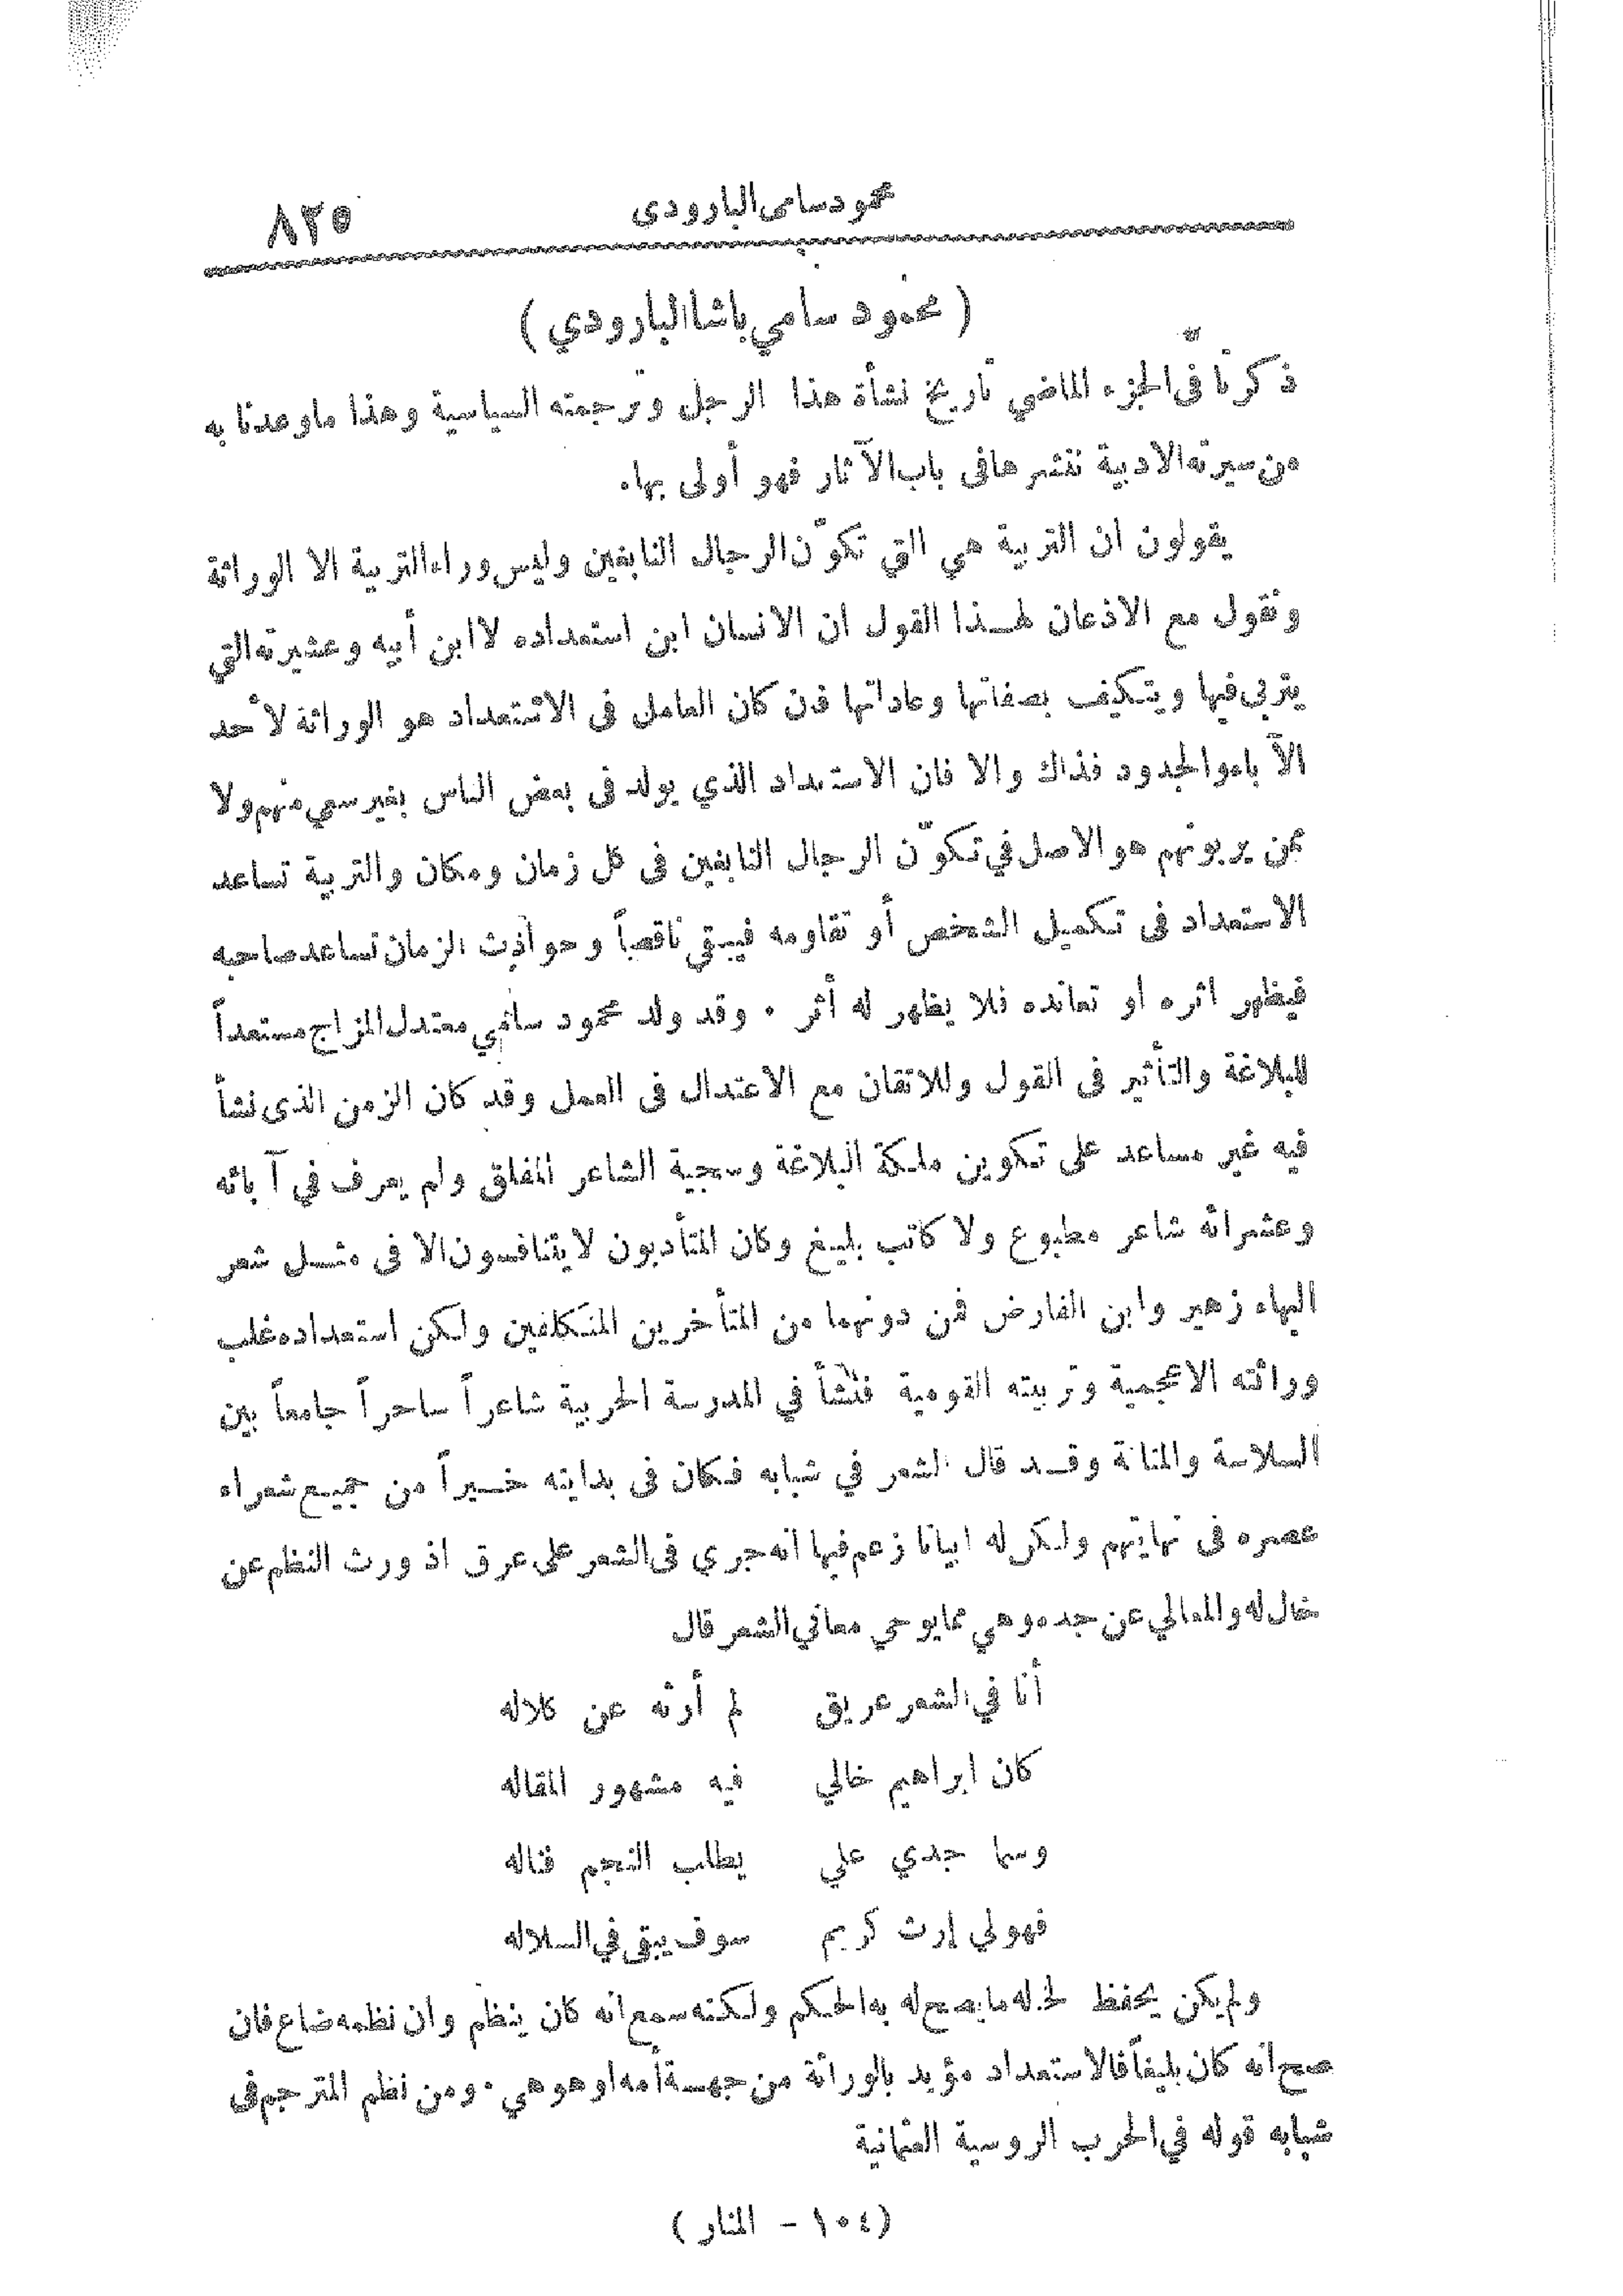 محمود سامى البارودى ٨٢٥
( محمود سامي باشا البارودي )
ذكرنا فى الجزء الماضي تاريخ نشأة هذا الرجل وترجمته السياسية وهذا ما وعدنا به
من سيرته الادبية ننشرها فى باب الآثار فهو أولى بها ٠
يقولون ان التربية هي التي تكوّن الرجال النابغين وليس وراء التربية الا الوراثة
ونقول مع الاذعان لهذا القول ان الانسان ابن استعداده لا ابن أبيه وعشيرته التي
يتربى فيها ويتكيف بصفاتها وعاداتها فان كان العامل فى الاستعداد هو الوراثة لأحد
الآباء والجدود فذاك والا فان الاستعداد الذي يولد فى بعض الناس بغير سعي منهم ولا
ممن يربونهم هو الاصل في تكوّن الرجال النابغين فى كل زمان ومكان والتربية تساعد
الاستعداد فى تكميل الشخص أو تقاومه فيبقى ناقصاً وحوادث الزمان تساعد صاحبه
فيظهر اثره او تعانده فلا يظهر له أثر ٠ وقد ولد محمود سامي معتدل المزاج مستعداً
للبلاغة والتأثير فى القول وللاتقان مع الاعتدال فى العمل وقد كان الزمن الذى نشأ
فيه غير مساعد على تكوين ملكة البلاغة وسجية الشاعر المفلق ولم يعرف في آبائه
وعشرائه شاعر مطبوع ولا كاتب بليغ وكان المتأدبون لا يتنافسون الا فى مثل شعر
البهاء زهير وابن الفارض فمن دونهما من المتأخرين المتكلفين ولكن استعداده غلب
وراثته الاعجمية وتربيته القومية فنشأ في المدرسة الحربية شاعراً ساحراً جامعاً بين
السلاسة والمتانة وقد قال الشعر في شبابه فكان فى بدايته خيراً من جميع شعراء
عصره فى نهايتهم ولكن له ابياتا زعم فيها انه جري فى الشعر على عرق اذ ورث النظم عن
خال له والمعالي عن جده وهي مما يوحي معاني الشعر قال
أنا في الشعر عريق لم أرثه عن كلاله
كان ابراهيم خالي فيه مشهور المقاله
وسما جدي علي يطلب النجم فناله
فهو لي إرث كريم سوف يبقى في السلاله
ولم يكن يحفظ لخاله ما يصح له به الحكم ولكنه سمع انه كان ينظم وان نظمه ضاع فان
صح انه كان بليغاً فالاستعداد مؤيد بالوراثة من جهة أمه او هو هي ٠ ومن نظم المترجم فى
شبابه قوله في الحرب الروسية العثمانية
(١٠٤ – المنار )